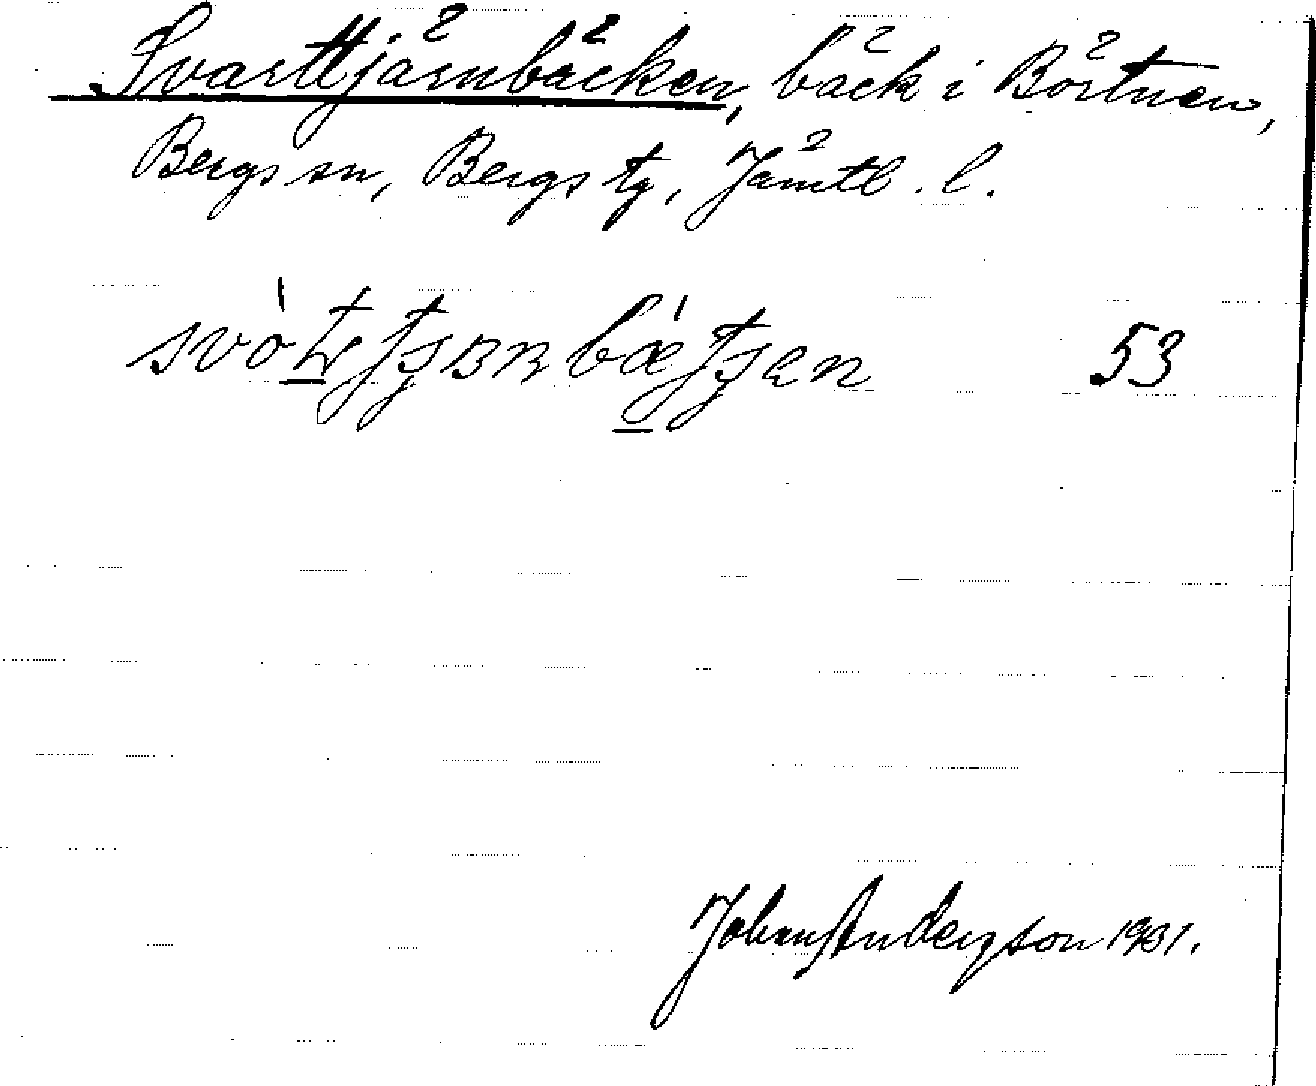 Svarttjärnbäcken, bäck i Börtnen,
Bergs sn, Bergs tg, Jämtl. l.
53
Johan Anderson 1931.